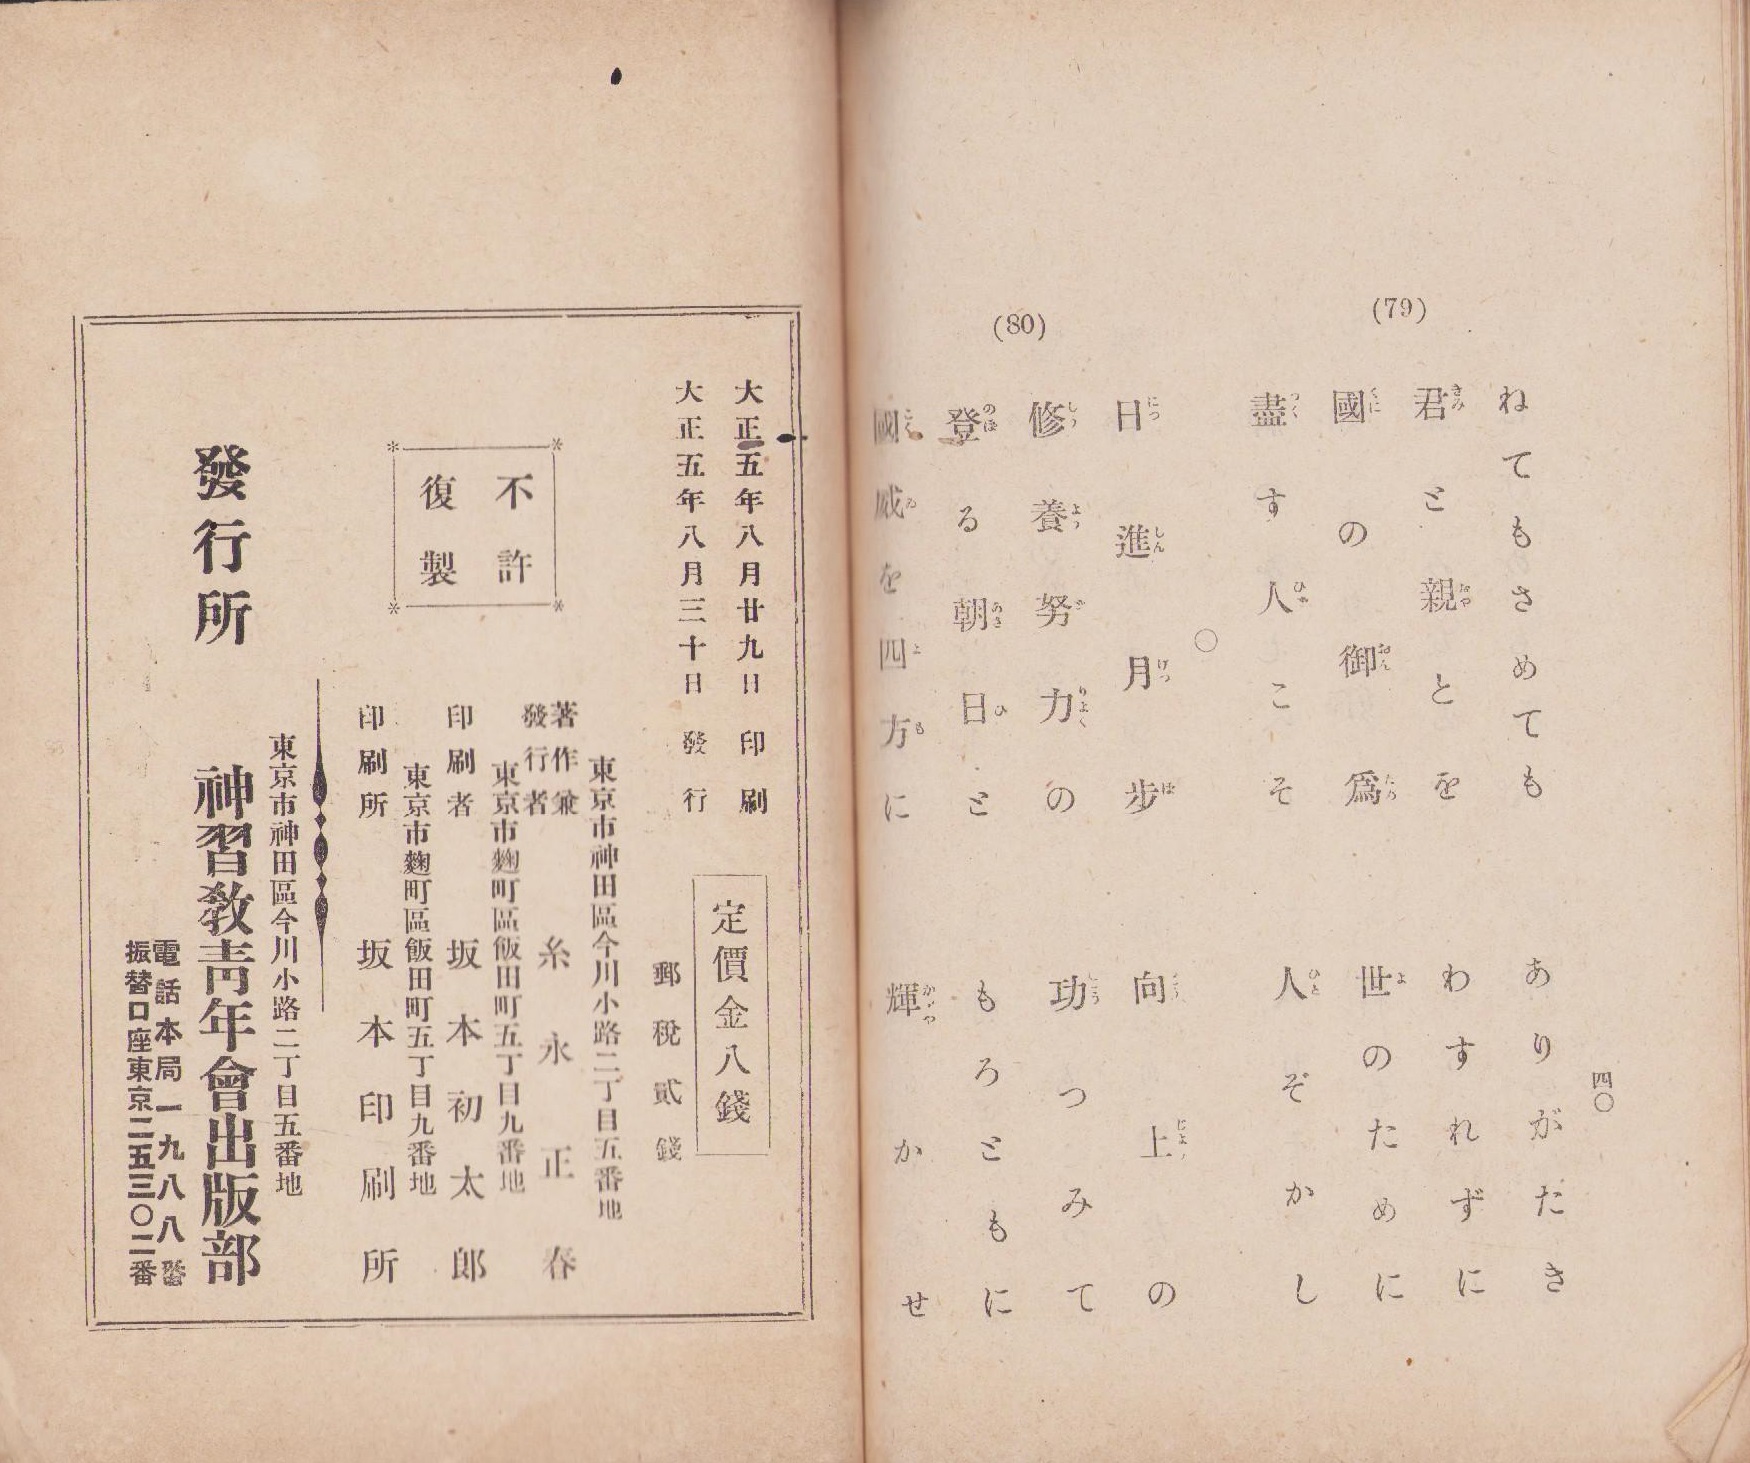 四〇
(79)
ねてもさめても ありがたき
君と親とを わすれずに
國の御爲 世のために
盡す人こそ 人ぞかし
〇
(80)
日進月步 向上の
修養努力の 功つみて
登る朝日と もろともに
國威を四方に 輝かせ
大正五年八月廿九日 印刷
大正五年八月三十日 發行
定價金八錢
郵稅貳錢
不許
復製
東京市神田區今川小路二丁目五番地
著作兼
發行者 糸永正春
東京市麴町區飯田町五丁目九番地
印刷者 坂本初太郎
東京市麴町區飯田町五丁目九番地
印刷所 坂本印刷所
東京市神田區今川小路二丁目五番地
發行所 神習教靑年會出版部
電話本局一九八八番
振替口座東京二五三〇二番